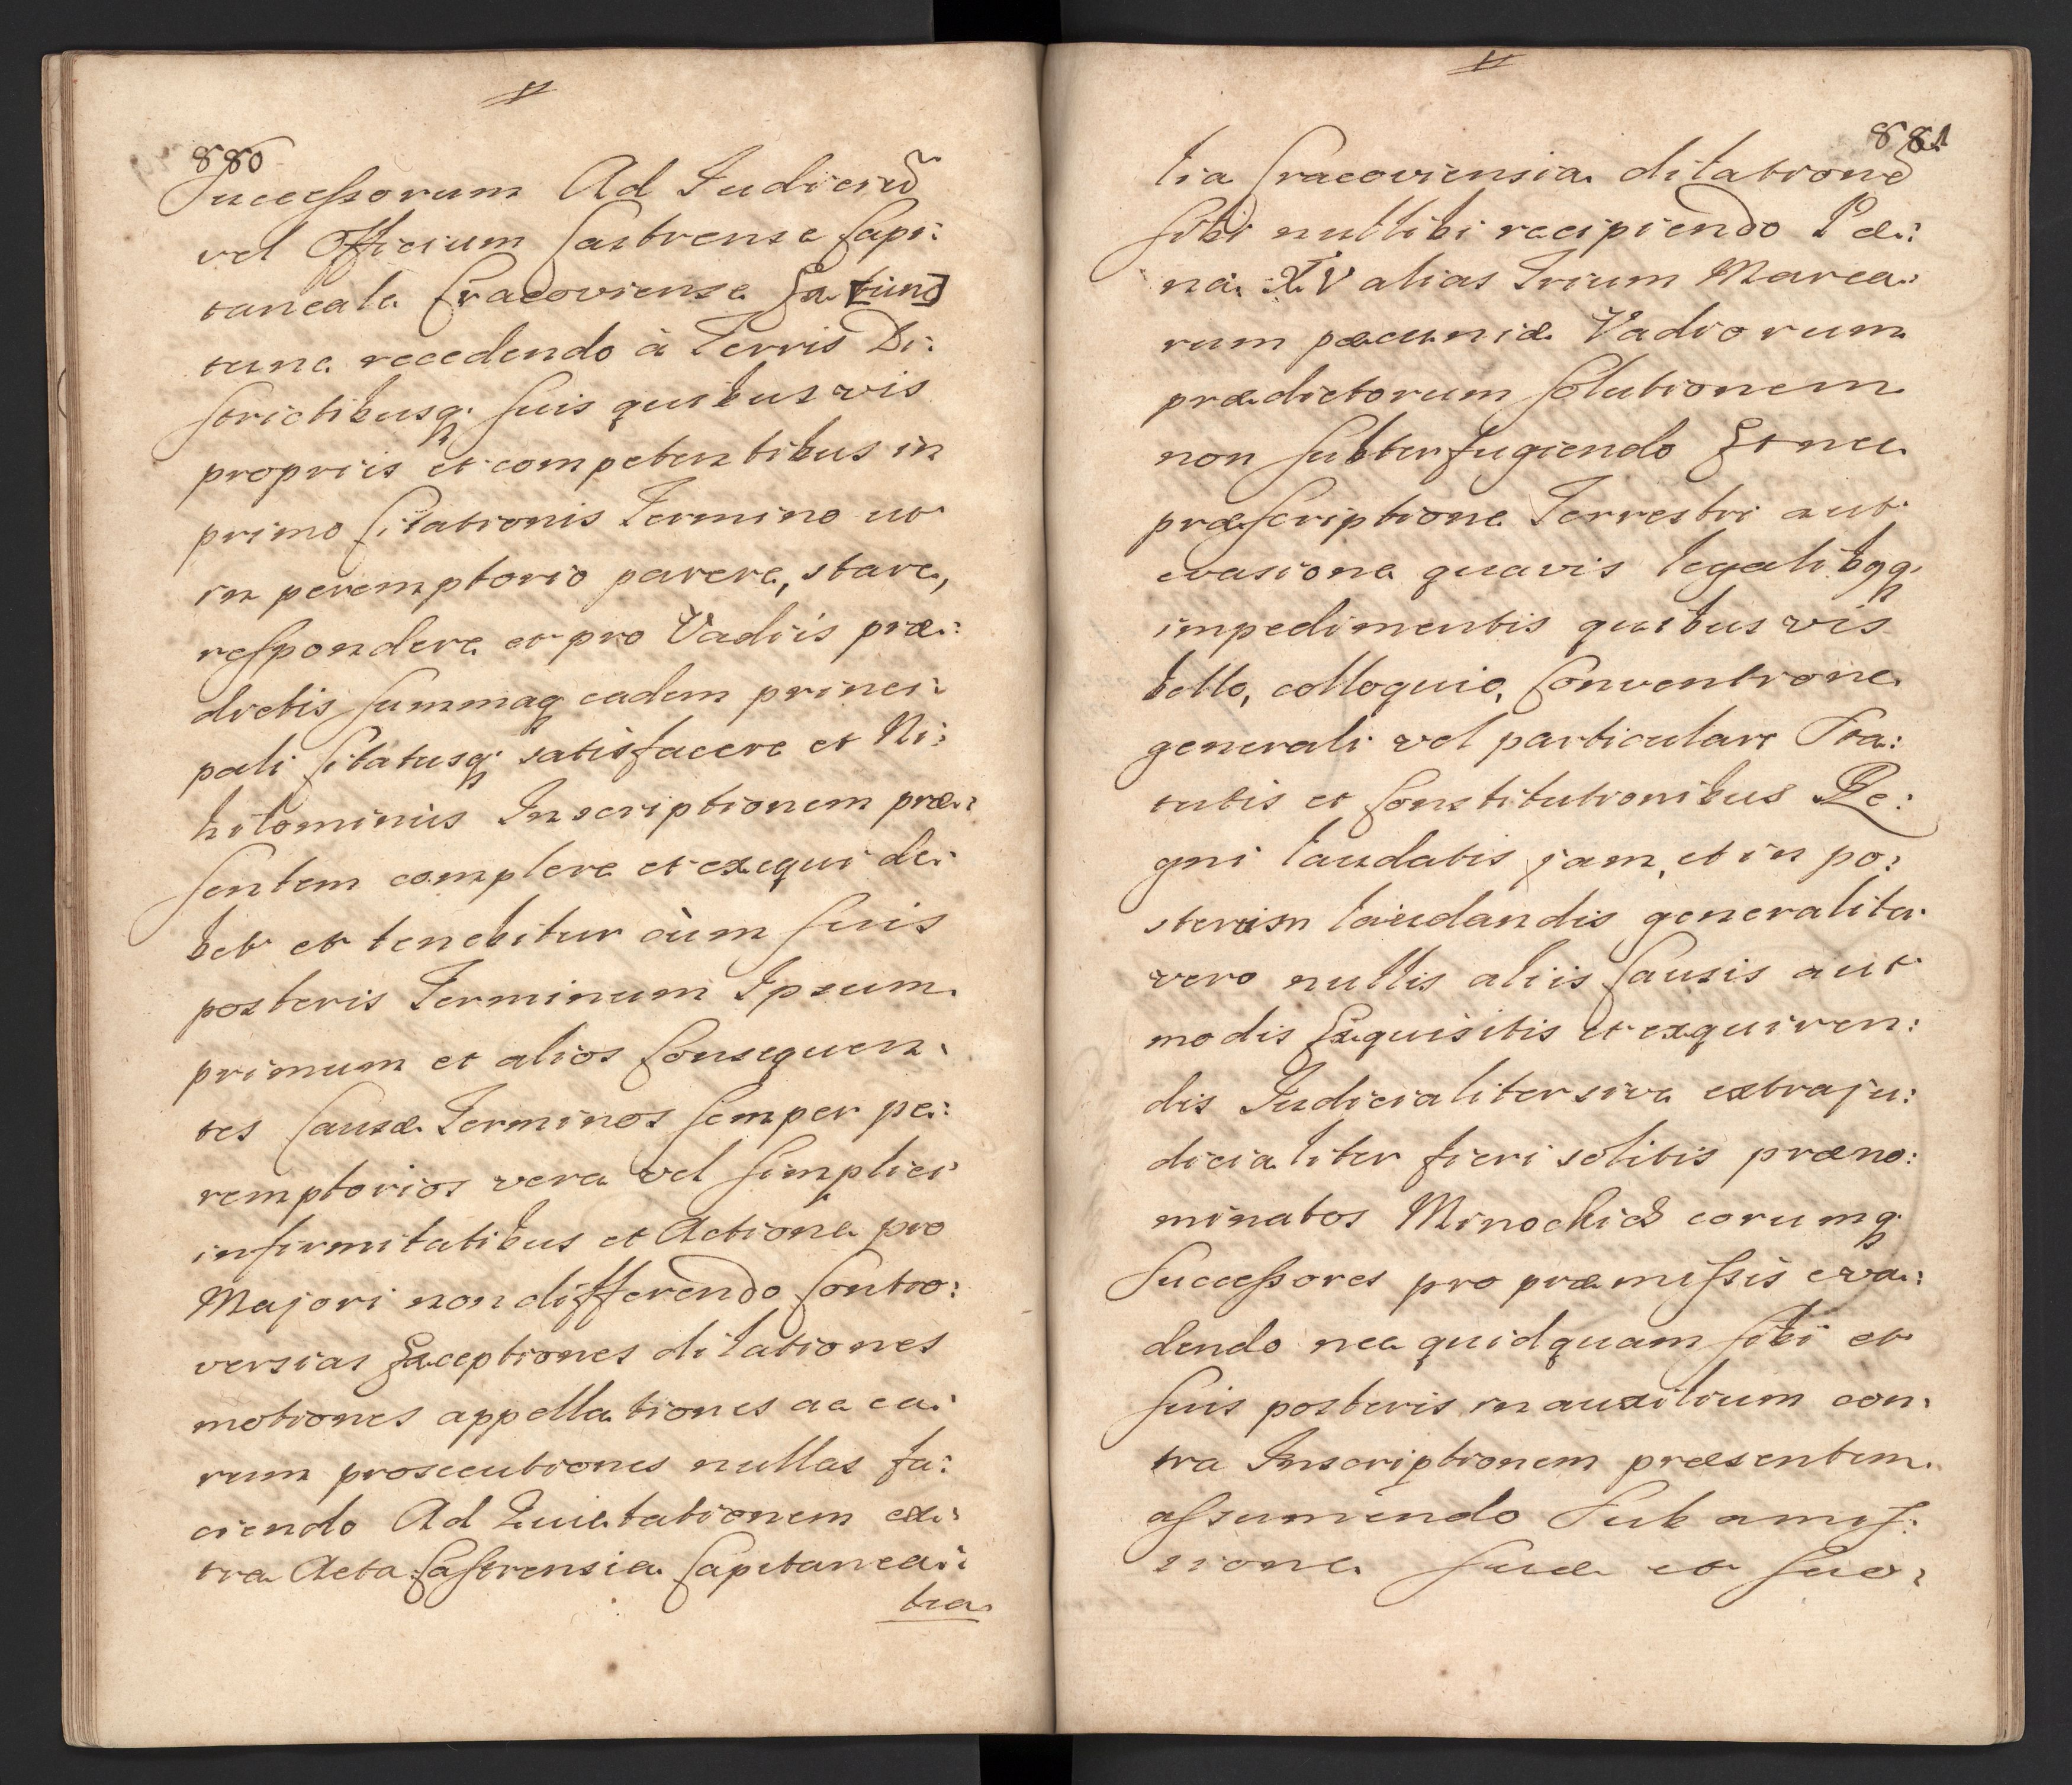 880
Successorum Ad Judiciũ
vel Officium Castrense Capi:
taneale Cracoviense Ex [tunc]
tunc recedendo à Terris Di:
strictibusq. suis quibusvis
propriis et competentibus in
primo Citationis Termino ut
in peremptorio parere, stare,
respondere et pro Vadiis præ:
dictis summaq eadem princi:
pali Citatusq. satisfacere et Ni:
hilominùs Inscriptionem præ:
sentem complere et exequi de:
bet et tenebitur cùm suis
posteris Terminum Ipsum
primum et alios Consequen:
tes Causæ Terminos semper pe:
remptorios vera vel simplici
infirmitatibus et Actione pro
Majori non differendo Contro:
versias Exceptiones dilationes
motiones appellationes ac ea:
rum prosecutiones nullas fa:
ciendo Ad Quietationem ex:
tra Acta Castrensia Capitanea:
lia
881
lia Cracoviensia dilationẽ
sibi nullibi recipiendo Pæ:
na XV alias Trium Marca:
rum pæcuniæ Vadiorum
prædictorum solutionem
non subterfugiendo Et nec
præscriptione Terrestri aut
evasione quavis legalibqq.
impedimentis quibusvis
bello, colloquio, Conventione
generali vel particulari Sta:
tutis et Constitutionibus Re:
gni laudatis jam, et in po:
sterum laudandis generalita:
vero nullis aliis Causis aut
modis Exquisitis et exquiren:
dis Judicialiter sive extraju:
dicialiter fieri solitis præno:
minatos Minockie corumq.
Successores pro præmissis eva:
dendo nec quidquam sibi et
suis posteris in auxilium con:
tra Inscriptionem præsentem
assumendo Sub amis:
sione suæ et suo: